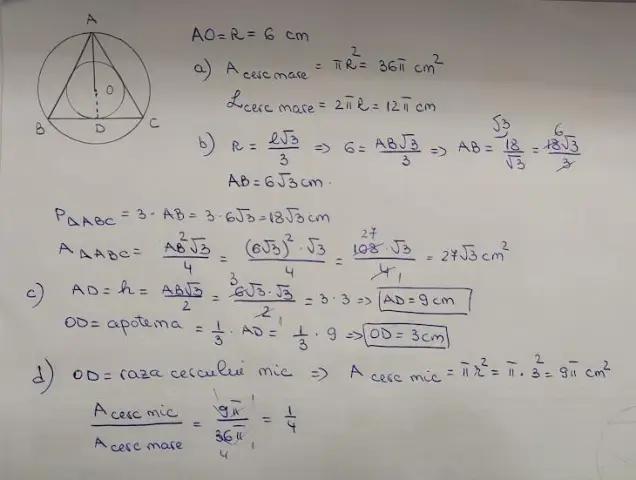 A
O
B
D
C
AO = R = 6 cm
a) A cerc mare = πR² = 36π cm²
L cerc mare = 2πR = 12π cm
b) R = l√3/3 => 6 = AB√3/3 => AB = 18/√3 (√3 = 18√3/3 6
AB = 6√3 cm.
P△ABC = 3 · AB = 3 · 6√3 = 18√3 cm
A△ABC = AB²√3/4 = (6√3)² · √3/4 = 27 108 · √3/4 1 = 27√3 cm²
c) AD = h = AB√3/2 = 3 6√3 · √3/2 1 = 3 · 3 => AD = 9 cm
OD = apotema = 1/3 · AD = 1/3 · 9 => OD = 3 cm
d) OD = raza cercului mic => A cerc mic = πr² = π · 3² = 9π cm²
A cerc mic/A cerc mare = 1 9π 1/36π 4 1 = 1/4